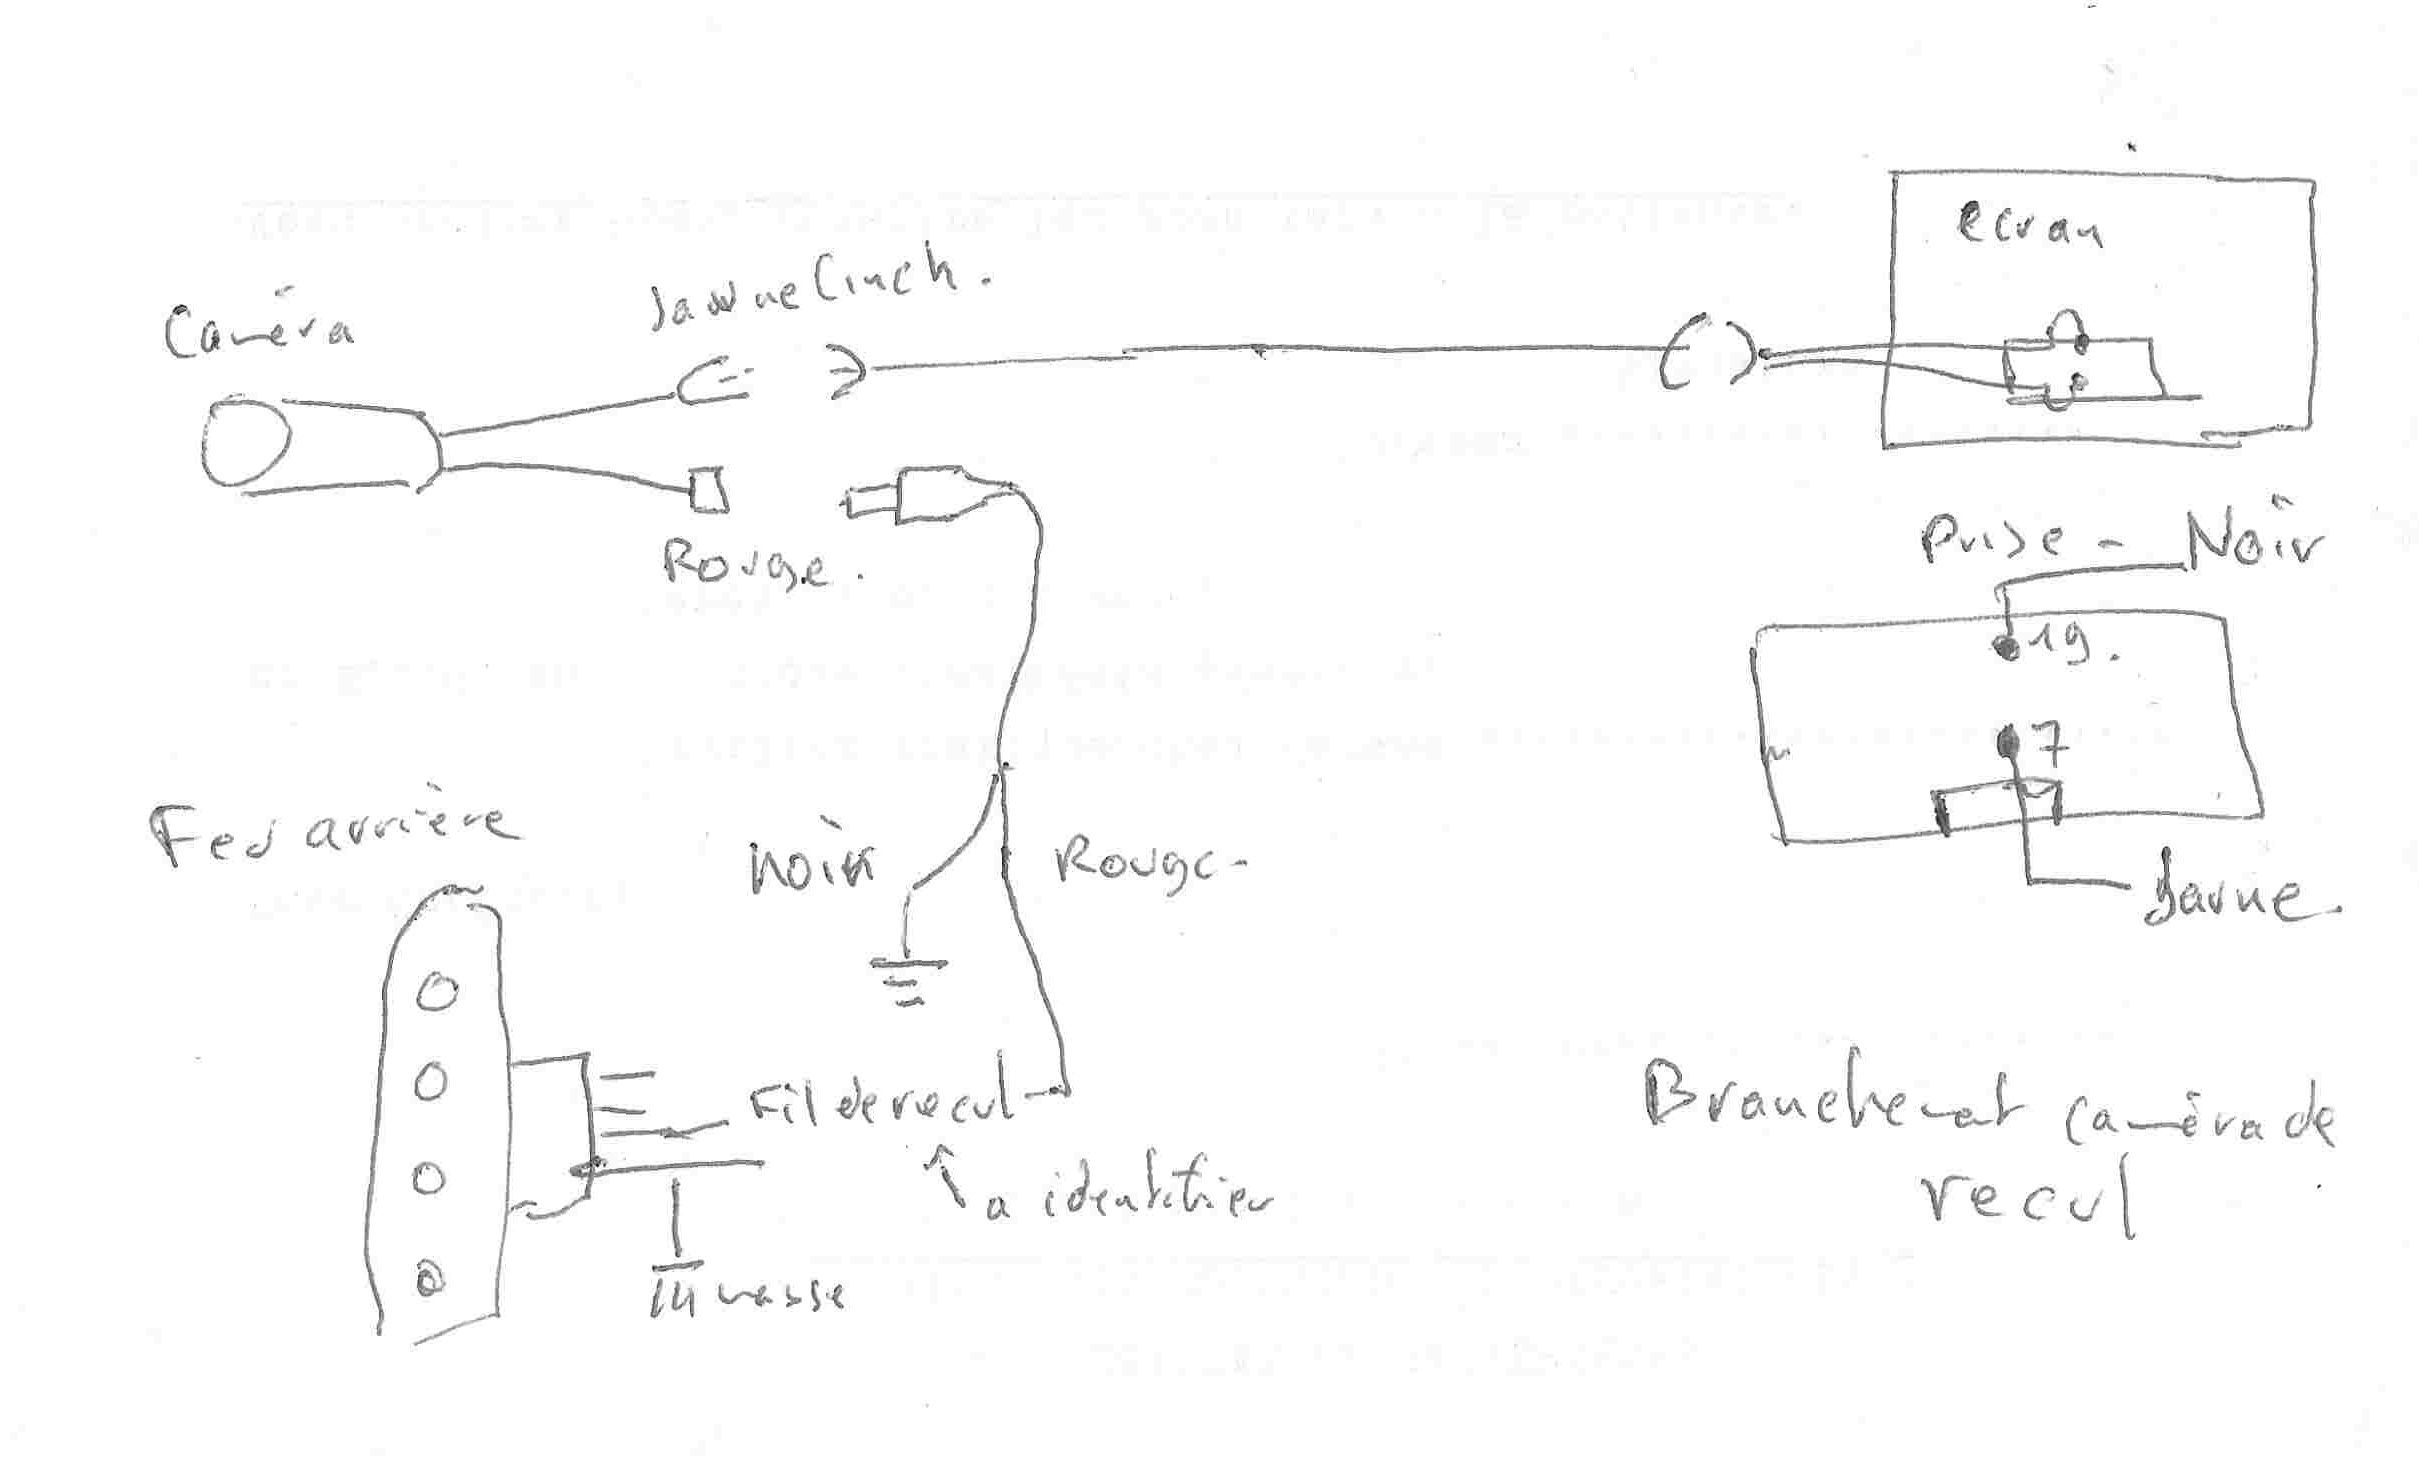 ecran
Jaune Cinch.
Caméra
Prise - Noir
Rouge.
19.
7
Feu arrière
Noir
Rouge-
Jaune.
Fil de recul
Branchement caméra de
recul
a identifier
masse